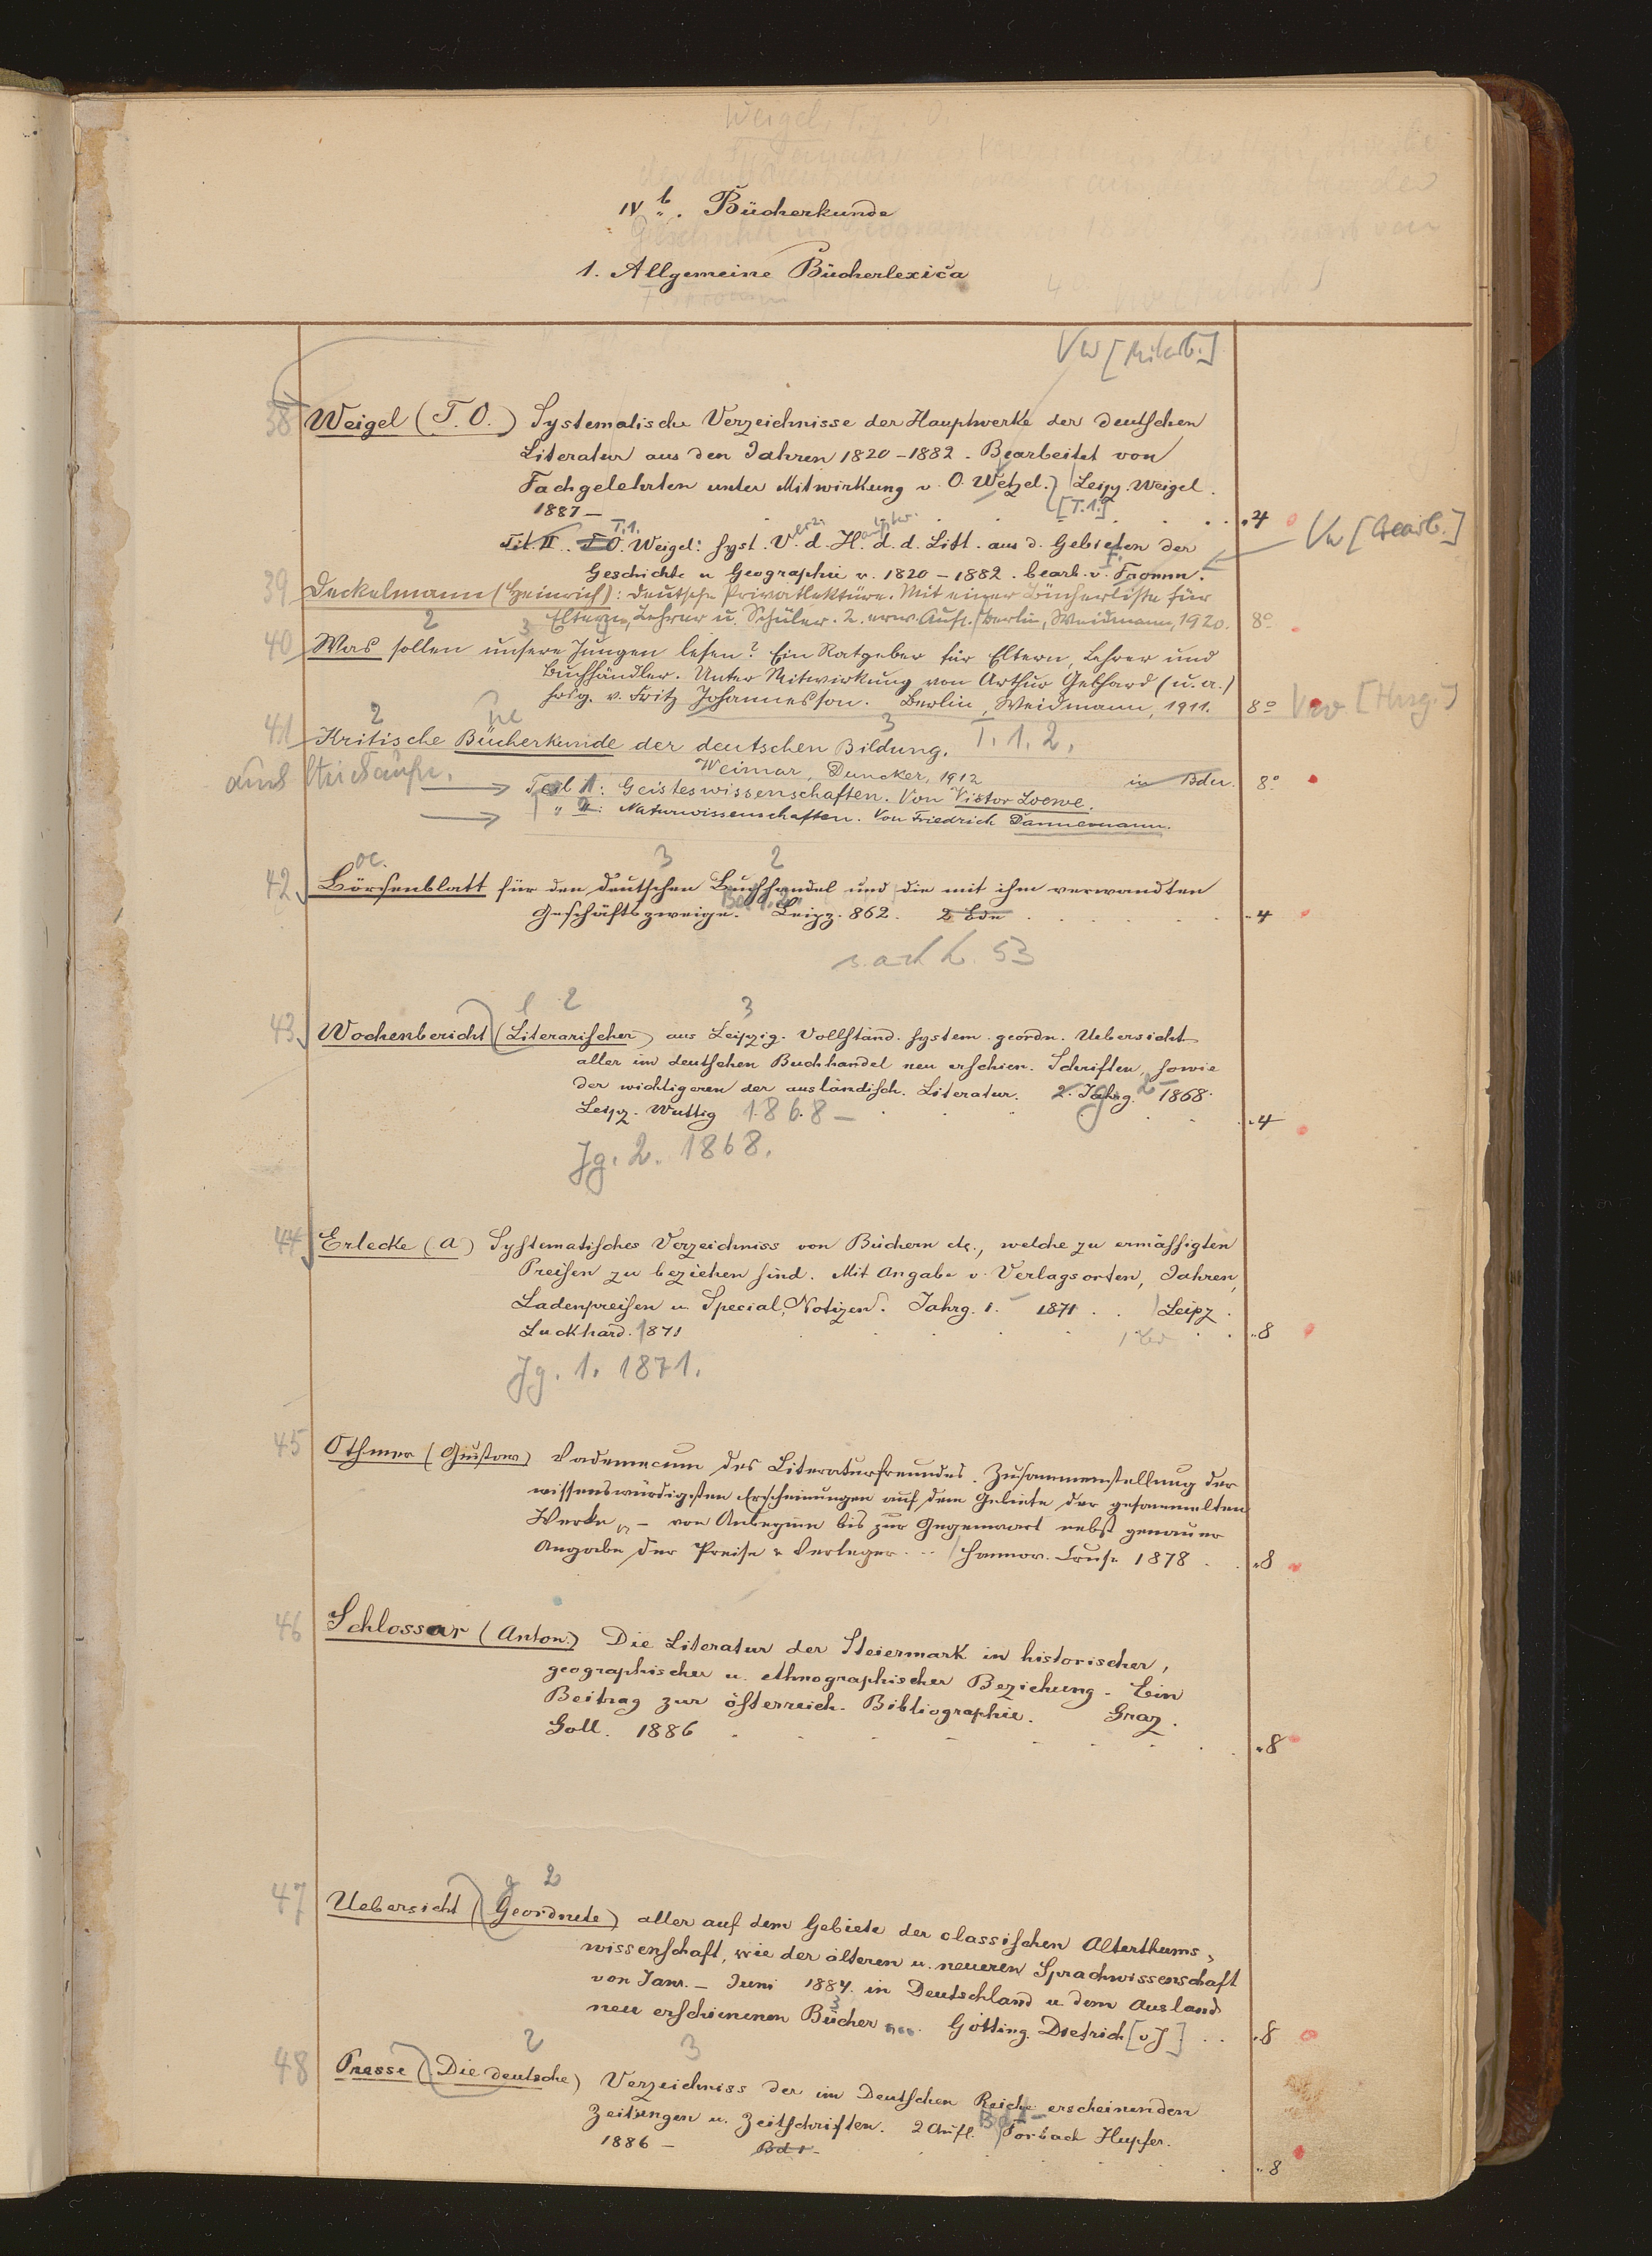 IV b. Bücherkunde
1. Allgemeine Bücherlexica
Vw [Mitarb.]
38 Weigel (T. O.) Systematische Verzeichnisse der Hauptwerke der deutschen
Literatur aus den Jahren 1820-1882. Bearbeitet von
Fachgelehrten unter Mitwirkung v. O. Wetzel. Leipz. Weigel.
1887 — [T.1.] 4
T.1.
Tit. II. T.O. Weigel: Syst. V. d. H. d. d. Litt. aus d. Gebieten der Vw [Bearb.]
Geschichte u Geographie v. 1820-1882. bearb. v. F. Fromm.
39 Deckelmann (Heinrich): Deutsche Privatlektüre. Mit einer Bücherliste für
Eltern, Lehrer u. Schüler. 2. erw. Aufl. Berlin, Weidmann, 1920. 8°
2 3
40 Was sollen unsere Jungen lesen? Ein Ratgeber für Eltern, Lehrer und
Buchhändler. Unter Mitwirkung von Arthur Gebhard (u. a.)
hrsg. v. Fritz Johannesson. Berlin, Weidmann, 1911. 8° Vw [Hrsg.]
2 3
41 Kritische Bücherkunde der deutschen Bildung. T. 1. 2.
Weimar, Duncker, 1912 in Bdn. 8°
Teil 1: Geisteswissenschaften. Von Victor Loewe.
" 2: Naturwissenschaften. Von Friedrich Dannemann.
3 2
42 Börsenblatt für den deutschen Buchhandel und die mit ihm verwandten
Geschäftszweige. Bd. 1. 2. Leipz. 862. 2 Bde 4
s. auch b. 53
l 2 3
43 Wochenbericht (Literarischer) aus Leipzig. Vollständ. system. geordn. Uebersicht
aller im deutschen Buchhandel neu erschien. Schriften, sowie
der wichtigeren der ausländisch. Literatur. 2. Jahrg. 1868.
Leipz. Wuttig 1868— 4
Jg. 2. 1868.
44 Erlecke (A) Systematisches Verzeichniss von Büchern etc., welche zu ermässigten
Preisen zu beziehen sind. Mit Angabe v. Verlagsorten, Jahren,
Ladenpreisen u. Special-Notizen. Jahrg. 1. 1871 . . Leipz.
Luckhard. 1871 1 Bd 8
Jg. 1. 1871.
45 Othmer (Gustav) Vademecum des Literaturfreundes. Zusammenstellung der
wissenswürdigsten Erscheinungen auf dem Gebiete der gesammelten
Werke, — von Anbeginn bis zur Gegenwart nebst genauer
Angabe der Preise u Verleger. .. Hannov. Cruse 1878 8
46 Schlossar (Anton.) Die Literatur der Steiermark in historischer,
geographischer u. ethnographischer Beziehung. Ein
Beitrag zur österreich. Bibliographie. Graz.
Goll. 1886 8
g 2
47 Uebersicht (Geordnete) aller auf dem Gebiete der classischen Alterthums-
wissenschaft, wie der älteren u. neueren Sprachwissenschaft
von Janr. — Juni 1884. in Deutschland u dem Ausland
neu erschienenen Bücher Götting. Dietrich [o J] 8
2 3
48 Presse (Die deutsche) Verzeichniss der im Deutschen Reiche erscheinenden
Zeitungen u. Zeitschriften. 2 Aufl. Bd 1— Forbach Hupfer.
1886 — Bd 1 8